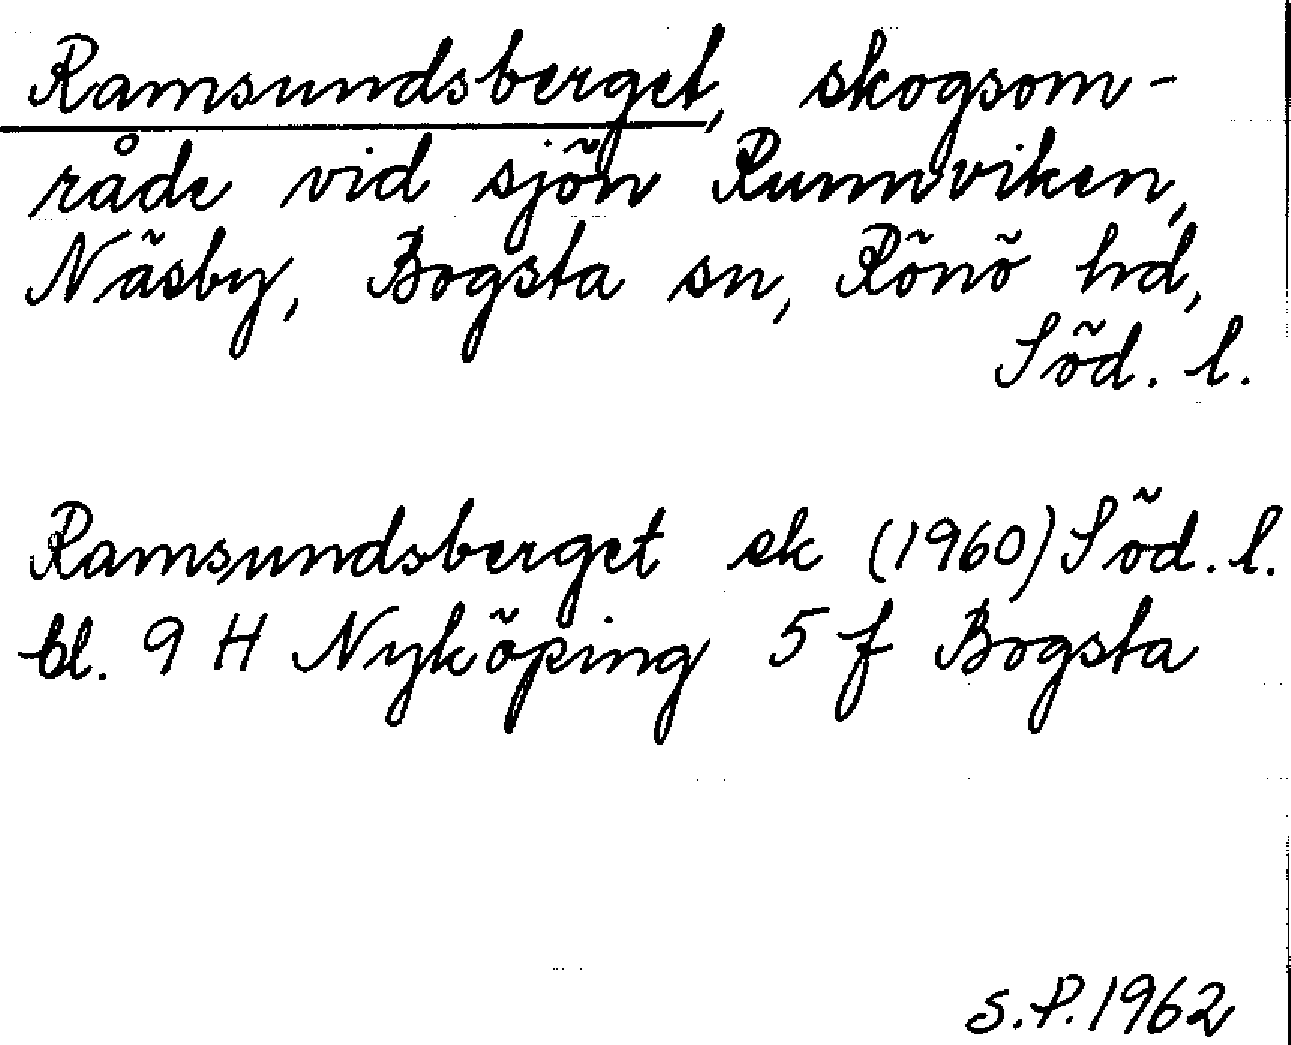 Ramsundsberget, skogsom-
råde vid sjön Runnviken,
Näsby, Bogsta sn, Rönö hd,
Söd. l.
Ramsundsberget ek (1960) Söd. l.
bl. 9 H Nyköping 5 f Bogsta
S.P. 1962